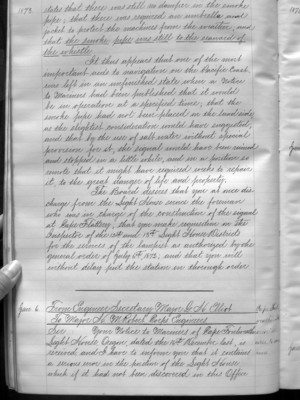 1872
states that there was still no damper in the smoke
pipe; that there was required an umbrella and
jacket to protect the machines from the weather; and
that the smoke pipe was still to the seaward of
the whistle.
It thus appears that one of the most
important aids to navigation on the Pacific Coast
was left in an unfinished state when a Notice
to Mariners had been published that it would
be in operation at a specified time; that the
smoke pipe had not been placed on the land side
as the slightest consideration would have suggested
and that by the use of salt water without special
provision for it, the signal would have been ruined
and stopped in a little while, and in a position so
remote that it might have required weeks to repair
it, to the great danger of life and property.
The Board desires that you at once dis-
charge from the Light House service the foreman
who was in charge of the construction of the signal
at Cape Flattery, that you make requisition on the
Inspector of the 12th and 13th Light House Districts
for the services of the lampist as authorized by the
general order of July 1st, 1872, and that you will
without delay put the station in thorough order.
Jan 6. From Engineer Secretary Major G. H. Elliot
To Major H. M. Robert Corps of Engineers
Sir: Your Notice to Mariners of
Light House, Oregon, dated the 16th November last, is
received, and I have to inform you that it contains
a serious error in the position of the Light House
which if it had not been discovered in this Office